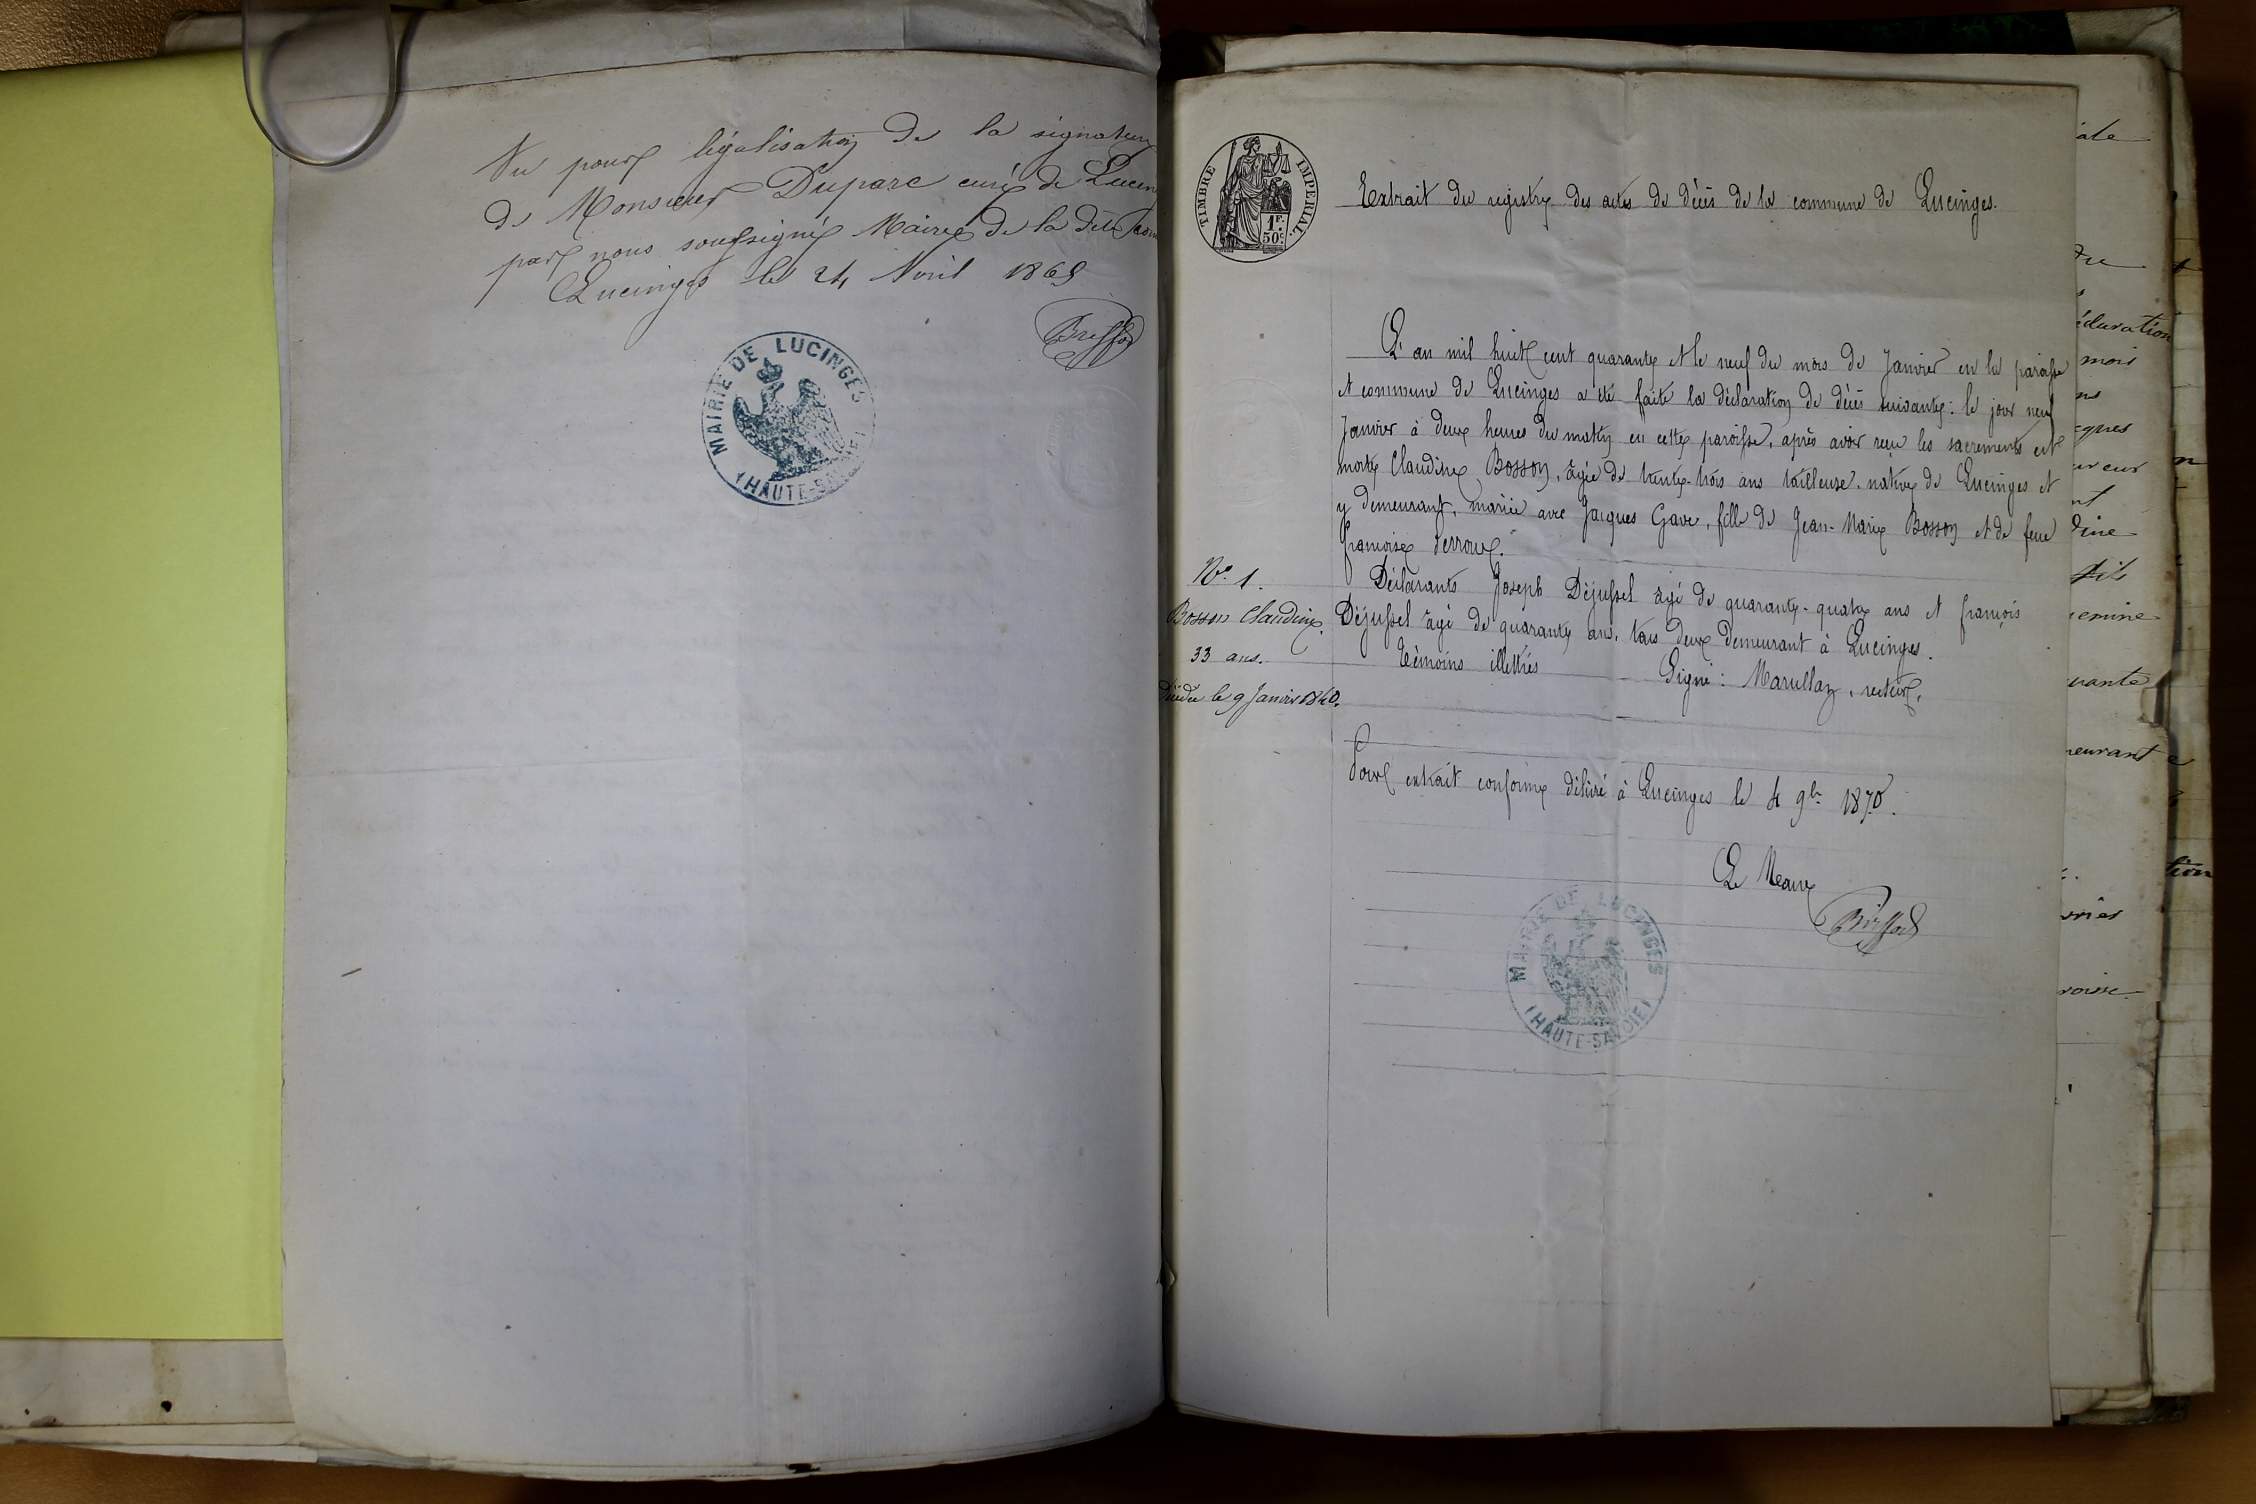 Vu pour légalisation de la signature
de Monsieur Duparc curé de Lucin
par nous soussigné Maire de la dite com
Lucinges le 24 Avril 1869
MAIRIE DE LUCINGES
(HAUTE-SAVOIE)
TIMBRE IMPERIAL
1F.
50c
Extrait du registre des actes de décès de la commune de Lucinges.
L'an mil huit cent quarante et le neuf du mois de Janvier en la paroisse
et commune de Lucinges a été faite la déclaration de décès suivante: le jour neuf
Janvier à deux heures du matin en cette paroisse, après avoir reçu les sacrements est
morte Claudine Bosson, âgée de trente-trois ans tailleuse. native de Lucinges et
y demeurant, mariée avec Jacques Gave, fille de Jean-Marie Bosson et de feue
françoise
Déclarants Joseph Déjussel âgé de quarante-quatre ans et françois
Déjussel âgé de quarante ans, tous deux demeurant à Lucinges.
témoins illettrés Signé: Marullaz, recteur.
No. 1.
Bosson Claudine.
33 ans.
décédée le 9 Janvier 1840.
Pour extrait conforme délivré à Lucinges le 4 9bre 1870.
Le Maire
MAIRIE DE LUCINGES
(HAUTE-SAVOIE)
ale
claration
mois
ns
cques
ureur
nt
dine
fils
emine
uante
meurant
tion
vrier
roisse